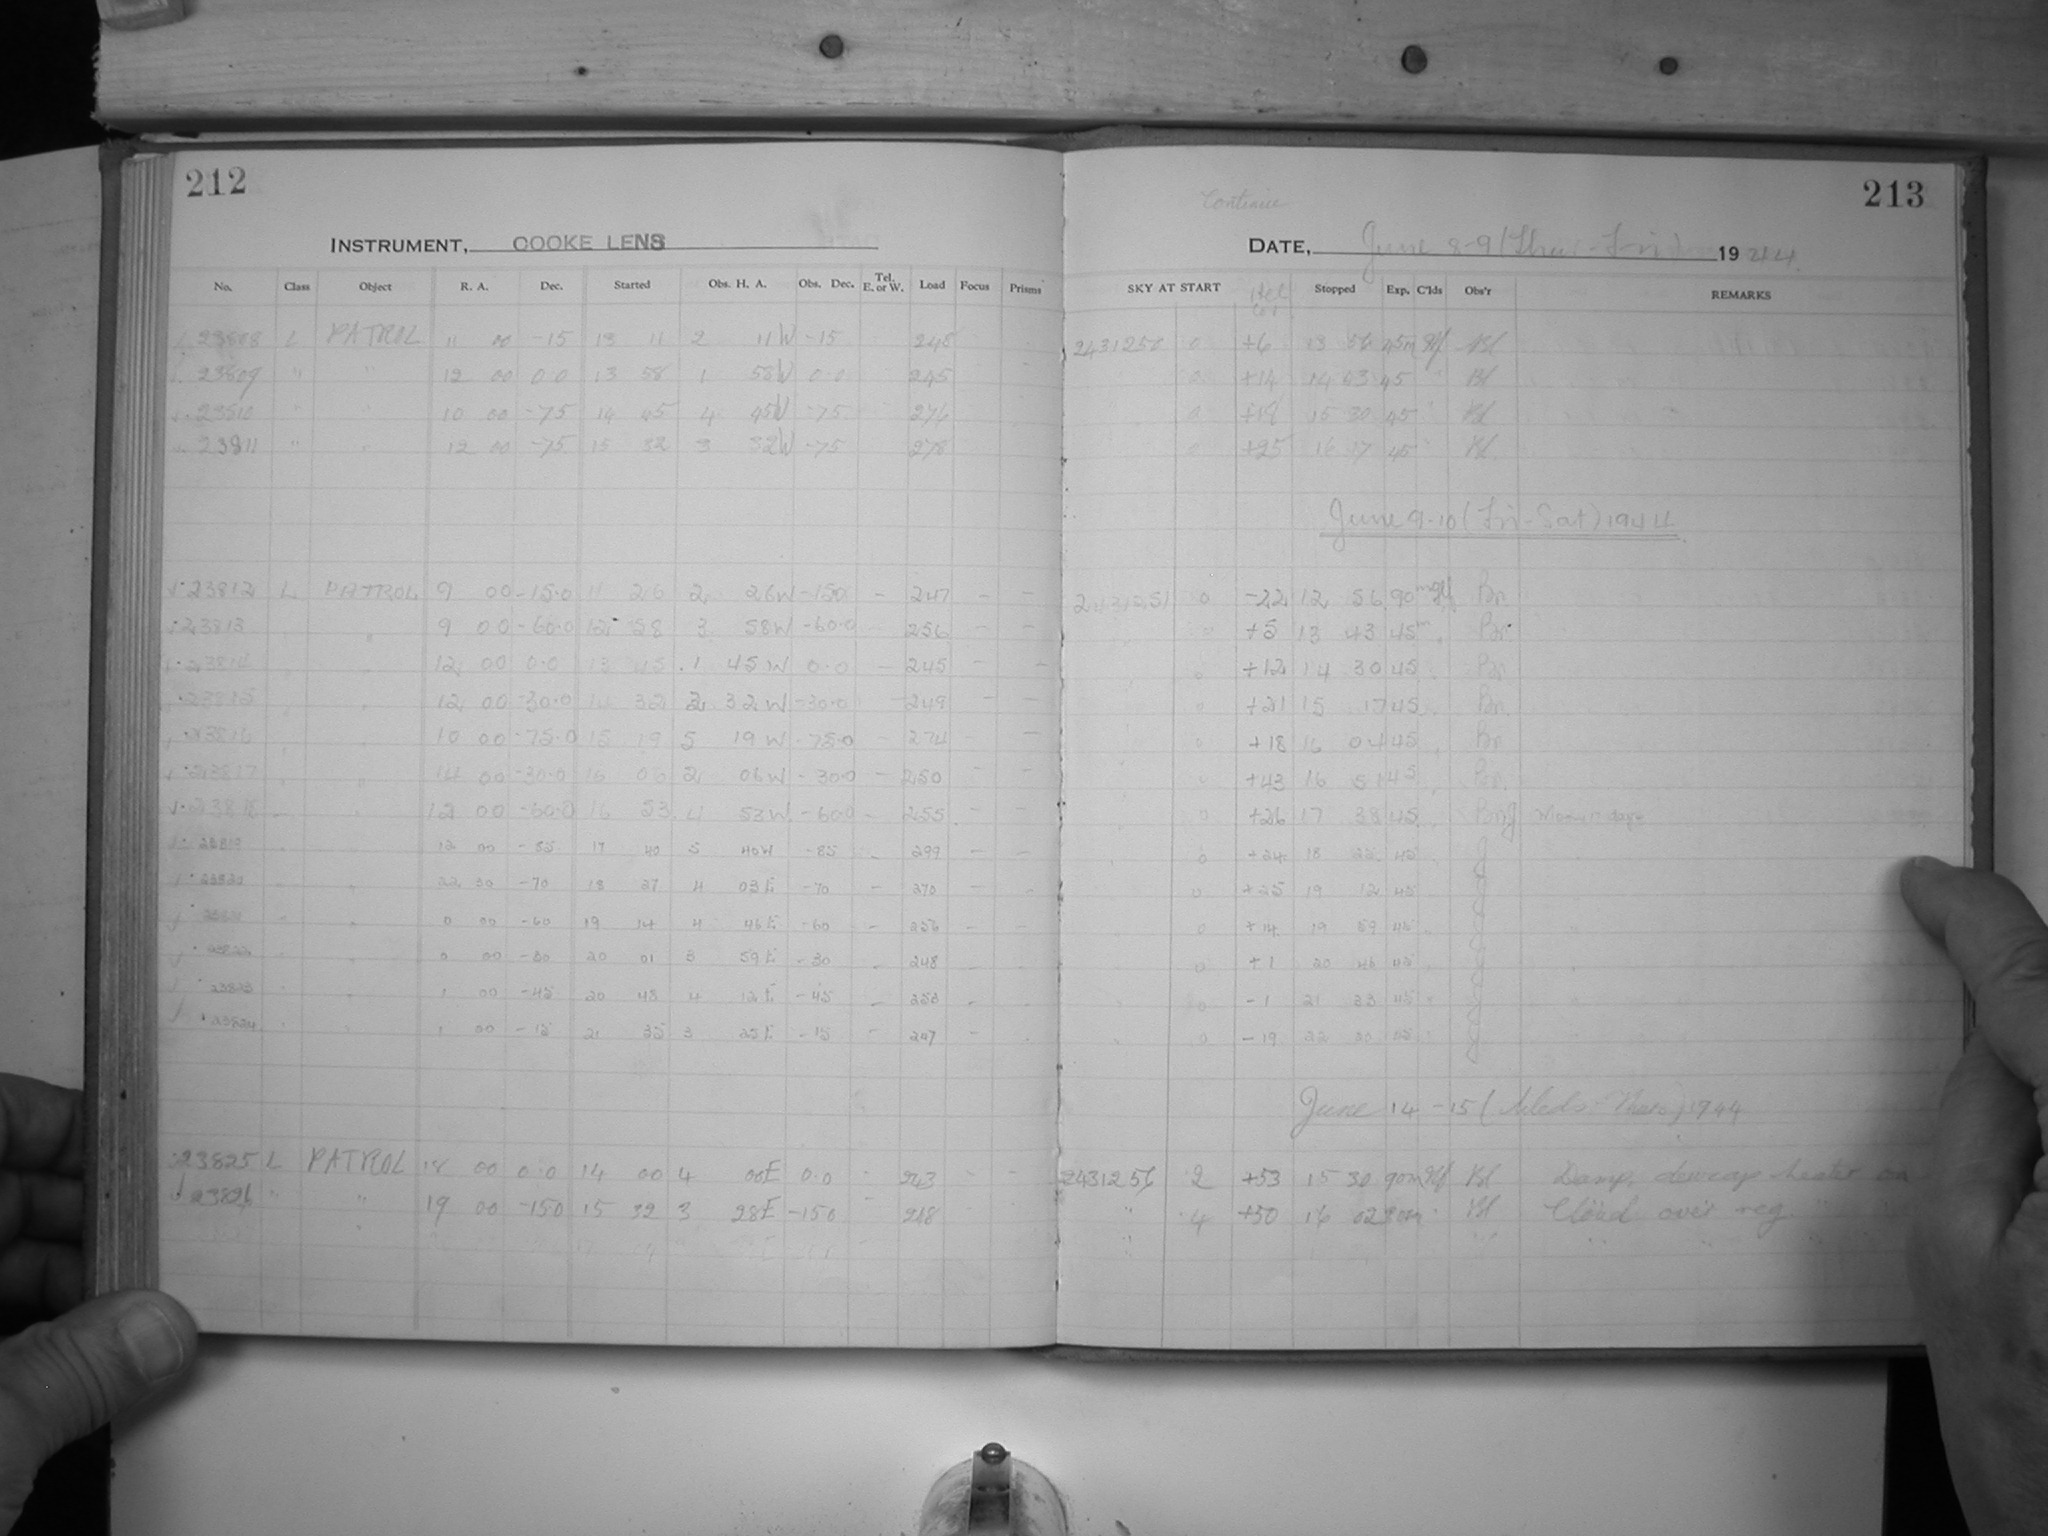 212
INSTRUMENT, COOKE LENS
No. Class Object R. A. Dec. Started Obs. H. A. Obs. Dec. Tel. E. or W. Load Focus Prisms
23808 L PATROL 11 00 -15 13 11 2 11W -15 248
23809 " " 12 00 0.0 13 58 1 58W 0.0 245
23810 " " 10 00 -75 14 45 4 45W -75 276
23811 " " 12 00 -75 15 32 3 32W -75 278
23812 L PATROL 9 00 -15.0 11 26 2 26W -150 - 247 - -
23813 " 9 00 -60.0 12 58 3 58W -60.0 256 - -
23814 12 00 0.0 13 45 1 45W 0.0 - 245 - -
23815 12 00 -30.0 14 32 2 32W -30.0 - 249 - -
23816 10 00 -75.0 15 19 5 19W -75.0 - 274 - -
23817 " 14 00 -30.0 16 06 2 06W -30.0 - 250 - -
23818 12 00 -60.0 16 53 4 53W -60.0 - 255 - -
23819 12 00 -85 17 40 5 40W -85 - 299 - -
23820 22 30 -70 18 27 4 03E -70 - 270 -
23821 0 00 -60 19 14 4 46E -60 - 256 - -
23822 0 00 -30 20 01 3 59E -30 - 248 -
23823 1 00 -45 20 48 4 12E -45 - 253 -
23824 1 00 -15 21 35 3 25E -15 - 247 -
23825 L PATROL 18 00 0.0 14 00 4 00E 0.0 - 243 - -
23826 " " 19 00 -150 15 32 3 28E -150 - 248
Continue
213
DATE, June 8-9 (Thur-Fri) 1944
SKY AT START Stopped Exp. C'lds Obs'r REMARKS
2431250 0 +6 13 56 45m Bl
0 +14 14 43 45 Bl
0 +18 15 30 45 Bl
0 +25 16 17 45 Bl
June 9-10 (Fri-Sat) 1944
2431251 0 -22 12 56 90m Bn
0 +5 13 43 45m Bn
0 +12 14 30 45 Bn
0 +21 15 17 45 Bn
0 +18 16 04 45 Bn
0 +43 16 51 45 Bn
0 +26 17 38 45
0 +24 18 25 45 J
0 +25 19 12 45 J
0 +14 19 59 45 J
0 +1 20 46 45 J
0 -1 21 33 45 J
0 -19 22 20 45 J
June 14-15 (Weds-Thurs) 1944
2431256 2 +53 15 30 90m Bl Damp, dewcap heater on
" 4 +50 16 02 30m Bl Cloud over reg. "